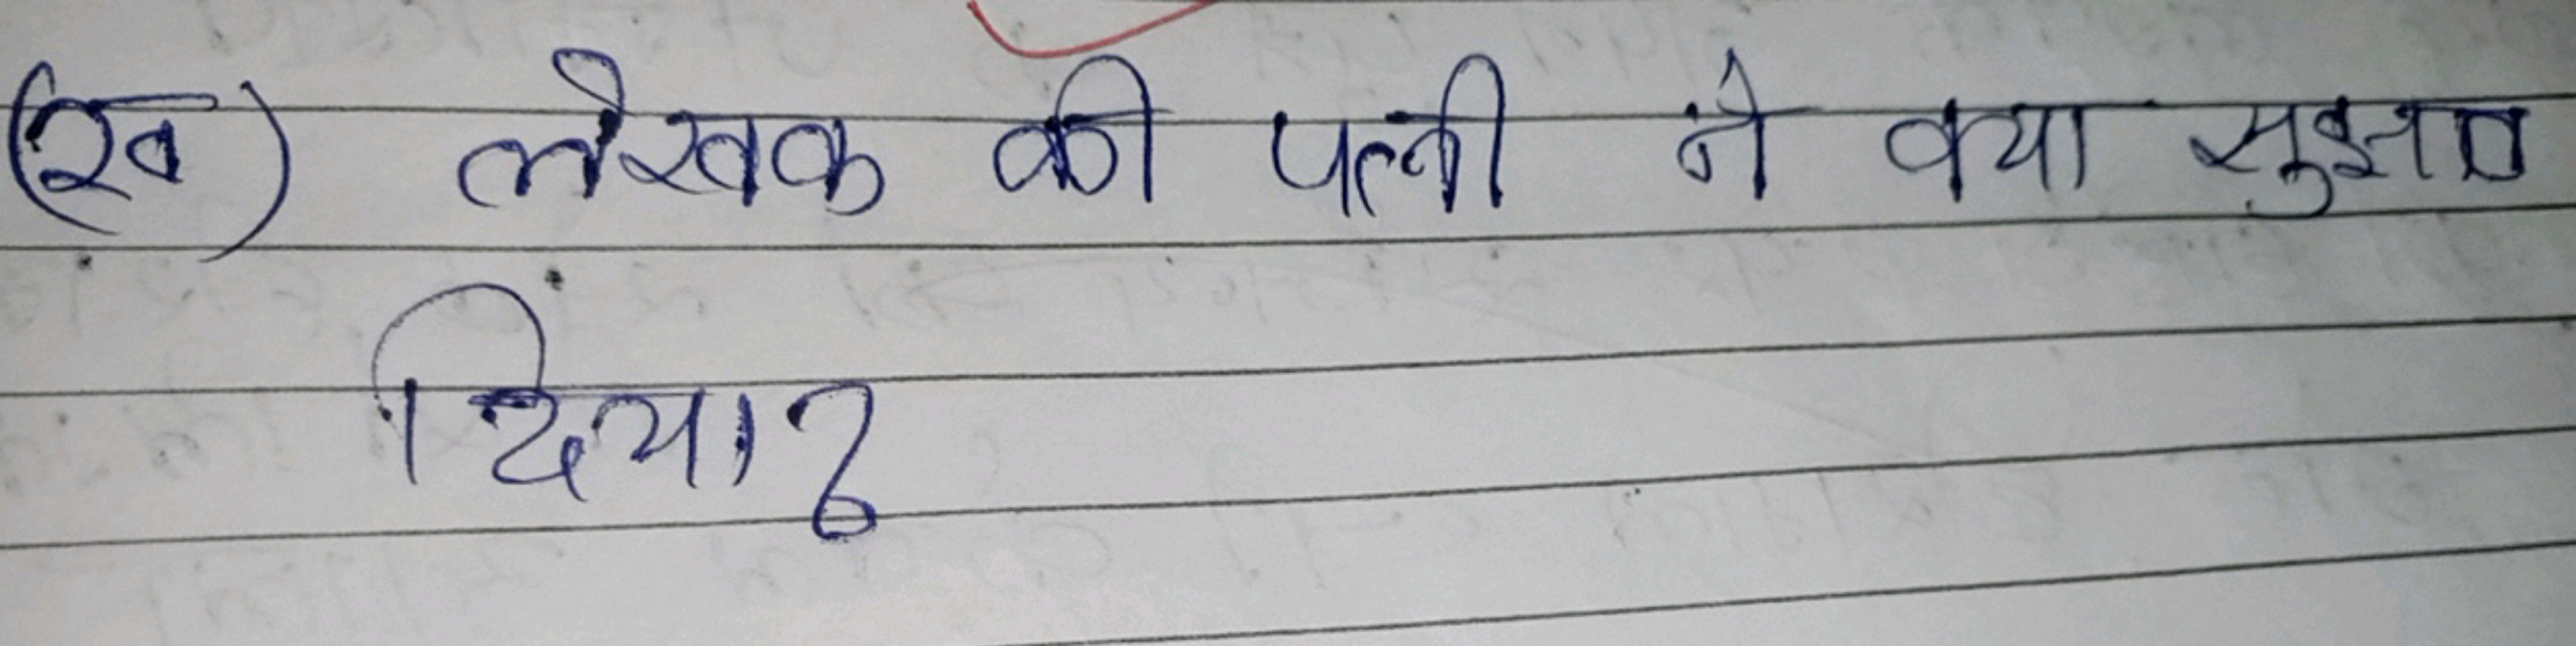 (ख) लेखक की पत्नी ने क्या सुझाव
दिया?